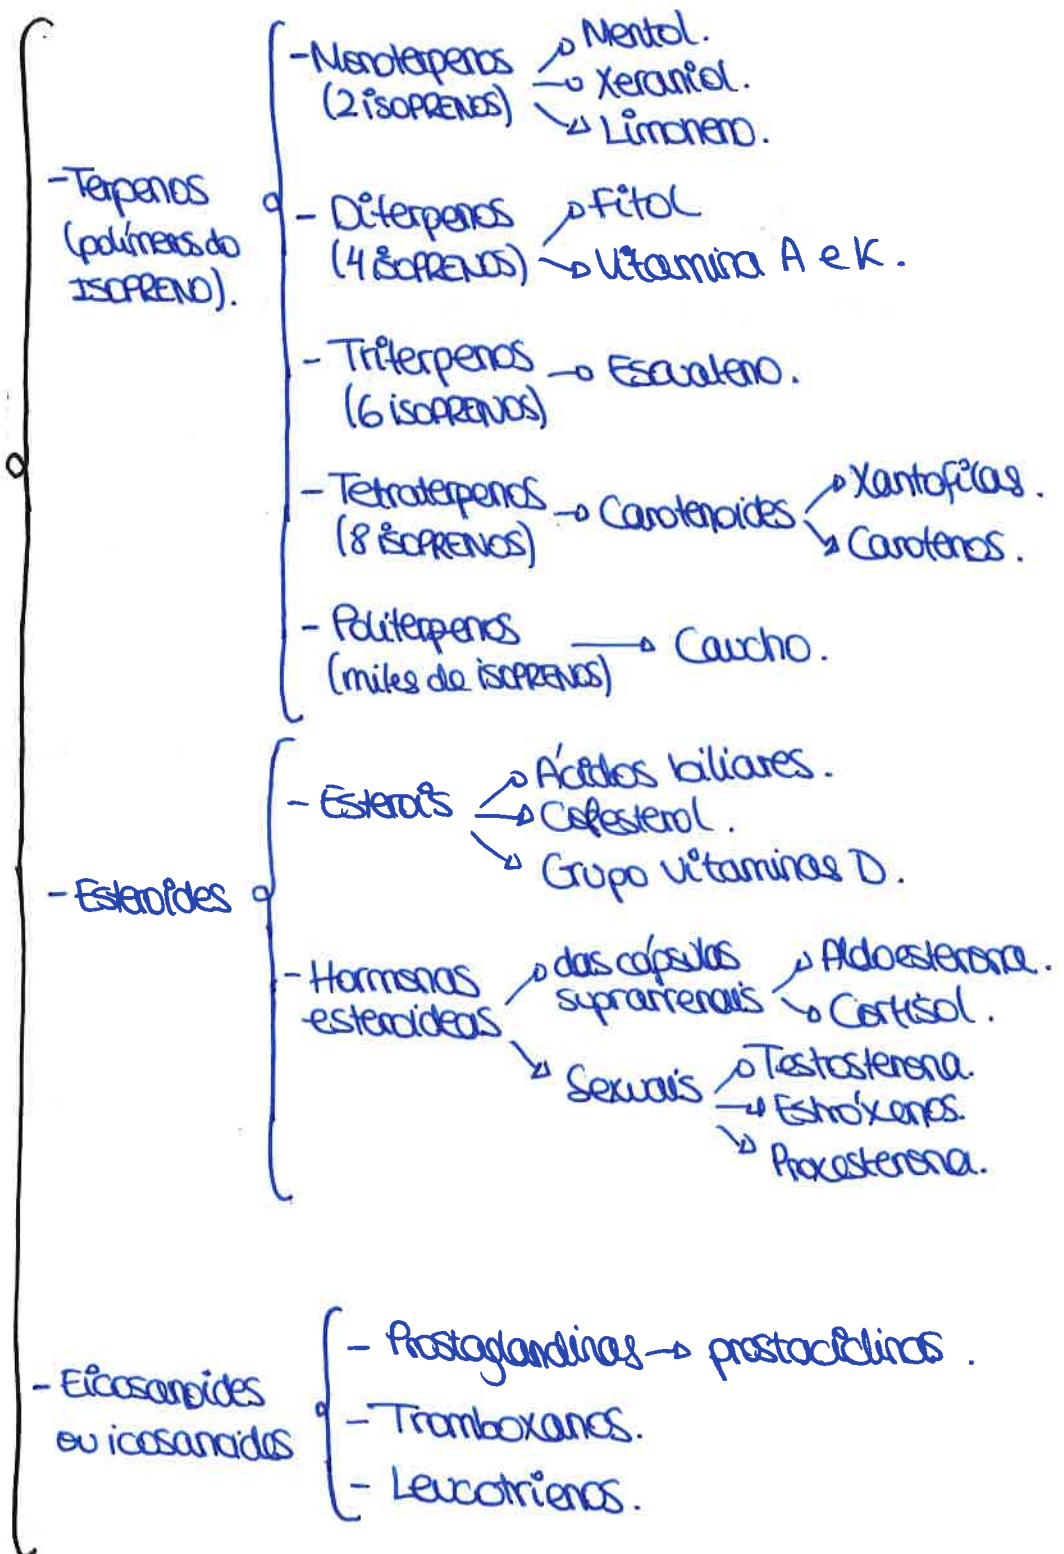 -Monoterpenos
(2 ISOPRENOS)
Mentol.
Xeraniol.
Limoneno.
-Terpenos
(polímeros do
ISOPRENO).
- Diterpenos
(4 ISOPRENOS)
Fitol
Vitamina A e K.
- Triterpenos
(6 ISOPRENOS)
Escualeno.
- Tetraterpenos
(8 ISOPRENOS)
Carotenoides
Xantofilas.
Carotenos.
- Politerpenos
(miles de ISOPRENOS)
Caucho.
- Esterois
Ácidos biliares.
Colesterol.
Grupo vitaminas D.
- Esteroides
- Hormonas
esteroideas
das cápsulas
suprarrenais
Aldoesterona.
Cortisol.
Sexuais
Testosterona.
Estróxenos.
Proxesterona.
- Eicosanoides
ou icosanoides
- Prostaglandinas → prostaciclinas.
- Tromboxanos.
- Leucotrienos.